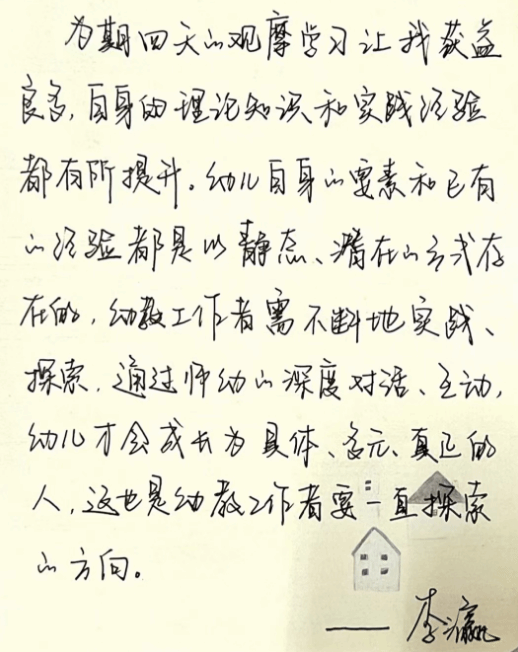 为期四天的观摩学习让我获益
良多,自身的理论知识和实践经验
都有所提升。幼儿自身的要素和已有
的经验都是以静态、潜在的方式存
在的,幼教工作者需不断地实践、
探索,通过师幼的深度对话、互动,
幼儿才会成长为具体、多元、真正的
人,这也是幼教工作者要一直探索
的方向。
—— 李瀛